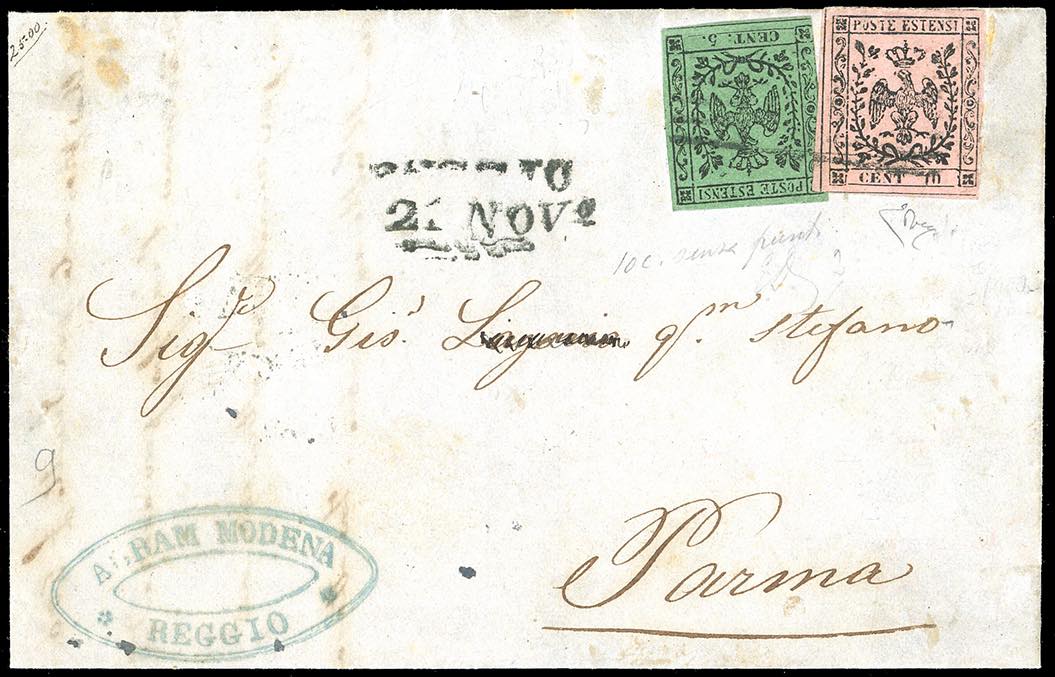 25.00.
CENT. 5.
POSTE ESTENSI
POSTE ESTENSI
CENT 10
21 NOVe
10 c. senza punti
Sigre Gis. qm Stefano
9
Parma
ABRAM MODENA
REGGIO